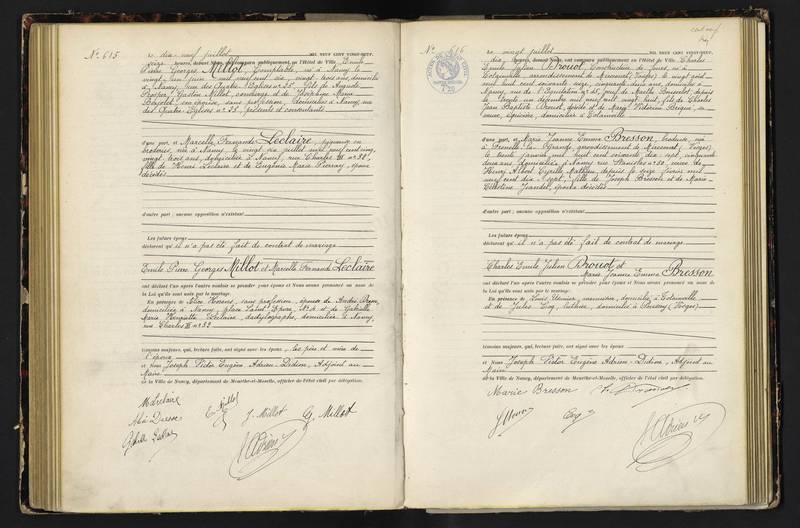 N° 615
Le dix neuf juillet MIL NEUF CENT VINGT-NEUF,
seize heures, devant Nous ont comparu publiquement, en l'Hôtel de Ville Emile
Pierre Georges Millot, Comptable, né à Nancy le
vingt juin mil neuf cent six, vingt trois ans, domicilié
à Nancy, rue des Quatre Eglises n° 35, fils de Auguste
Prosper Gaston Millot, concierge et de Joséphine Marie
son épouse, sans profession, domiciliés à Nancy, rue
des Quatre Eglises n° 35, présents et consentants
d'une part, et Marcelle Fernande Leclaire,
née à Nancy, le vingt six juillet mil neuf cent
vingt trois ans, domiciliée à Nancy, rue Charles III n°
fille de Henri Leclaire et de Eugénie Marie Pierson, époux
décédés
d'autre part ; aucune opposition n'existant
Les futurs époux
déclarent qu'il n'a pas été fait de contrat de mariage
Emile Pierre Georges Millot et Marcelle Fernande Leclaire
ont déclaré l'un après l'autre vouloir se prendre pour époux et Nous avons prononcé au nom de
la Loi qu'ils sont unis par le mariage.
En présence de Alice sans profession, épouse de André
domiciliée à Nancy, place Saint Epvre, n° 4 et de Gabrielle
Marie Henriette Leclaire, dactylographe, domiciliée à Nancy,
rue Charles III n° 32
témoins majeurs, qui, lecture faite, ont signé avec les époux, les père et mère de
l'époux
et Nous Joseph Victor Eugène Adrien Didion, Adjoint au
Maire
de la Ville de Nancy, département de Meurthe-et-Moselle, officier de l'état civil par délégation.
M Leclaire
E Millot
J. Millot
G. Millot
N° 616
Le vingt juillet MIL NEUF CENT VINGT-NEUF,
dix heures, devant Nous ont comparu publiquement, en l'Hôtel de Ville Charles
Emile Julien Brouot, Constructeur de fours, né à
Totainville arrondissement de Mirecourt (Vosges) le vingt août
mil huit cent soixante seize, cinquante deux ans, domicilié à
Nancy, rue de l'Equitation n° veuf de Marthe depuis
le trente un décembre mil neuf cent vingt huit, fils de Charles
Jean Baptiste Brouot, décédé et de Marie Victorine sa
veuve, domiciliée à Totainville
d'une part, et Marie Jeanne Emma Bresson, née
à Frenelle la Grande arrondissement de Mirecourt (Vosges)
le trente janvier mil huit cent soixante dix sept, cinquante
deux ans, domiciliée à Nancy rue Stanislas n° 50, veuve de
Henri Albert Mathieu, depuis le seize février mil
neuf cent dix sept, fille de Joseph Bresson et de Marie
Célestine époux décédés
d'autre part ; aucune opposition n'existant
Les futurs époux
déclarent qu'il n'a pas été fait de contrat de mariage
Charles Emile Julien Brouot et
Marie Jeanne Emma Bresson
ont déclaré l'un après l'autre vouloir se prendre pour époux et Nous avons prononcé au nom de
la Loi qu'ils sont unis par le mariage.
En présence de Louis domicilié à Totainville
et de Jules domicilié à Poussay (Vosges)
témoins majeurs, qui, lecture faite, ont signé avec les époux
et Nous Joseph Victor Eugène Adrien Didion, Adjoint au
Maire
de la Ville de Nancy, département de Meurthe-et-Moselle, officier de l'état civil par délégation.
Marie Bresson